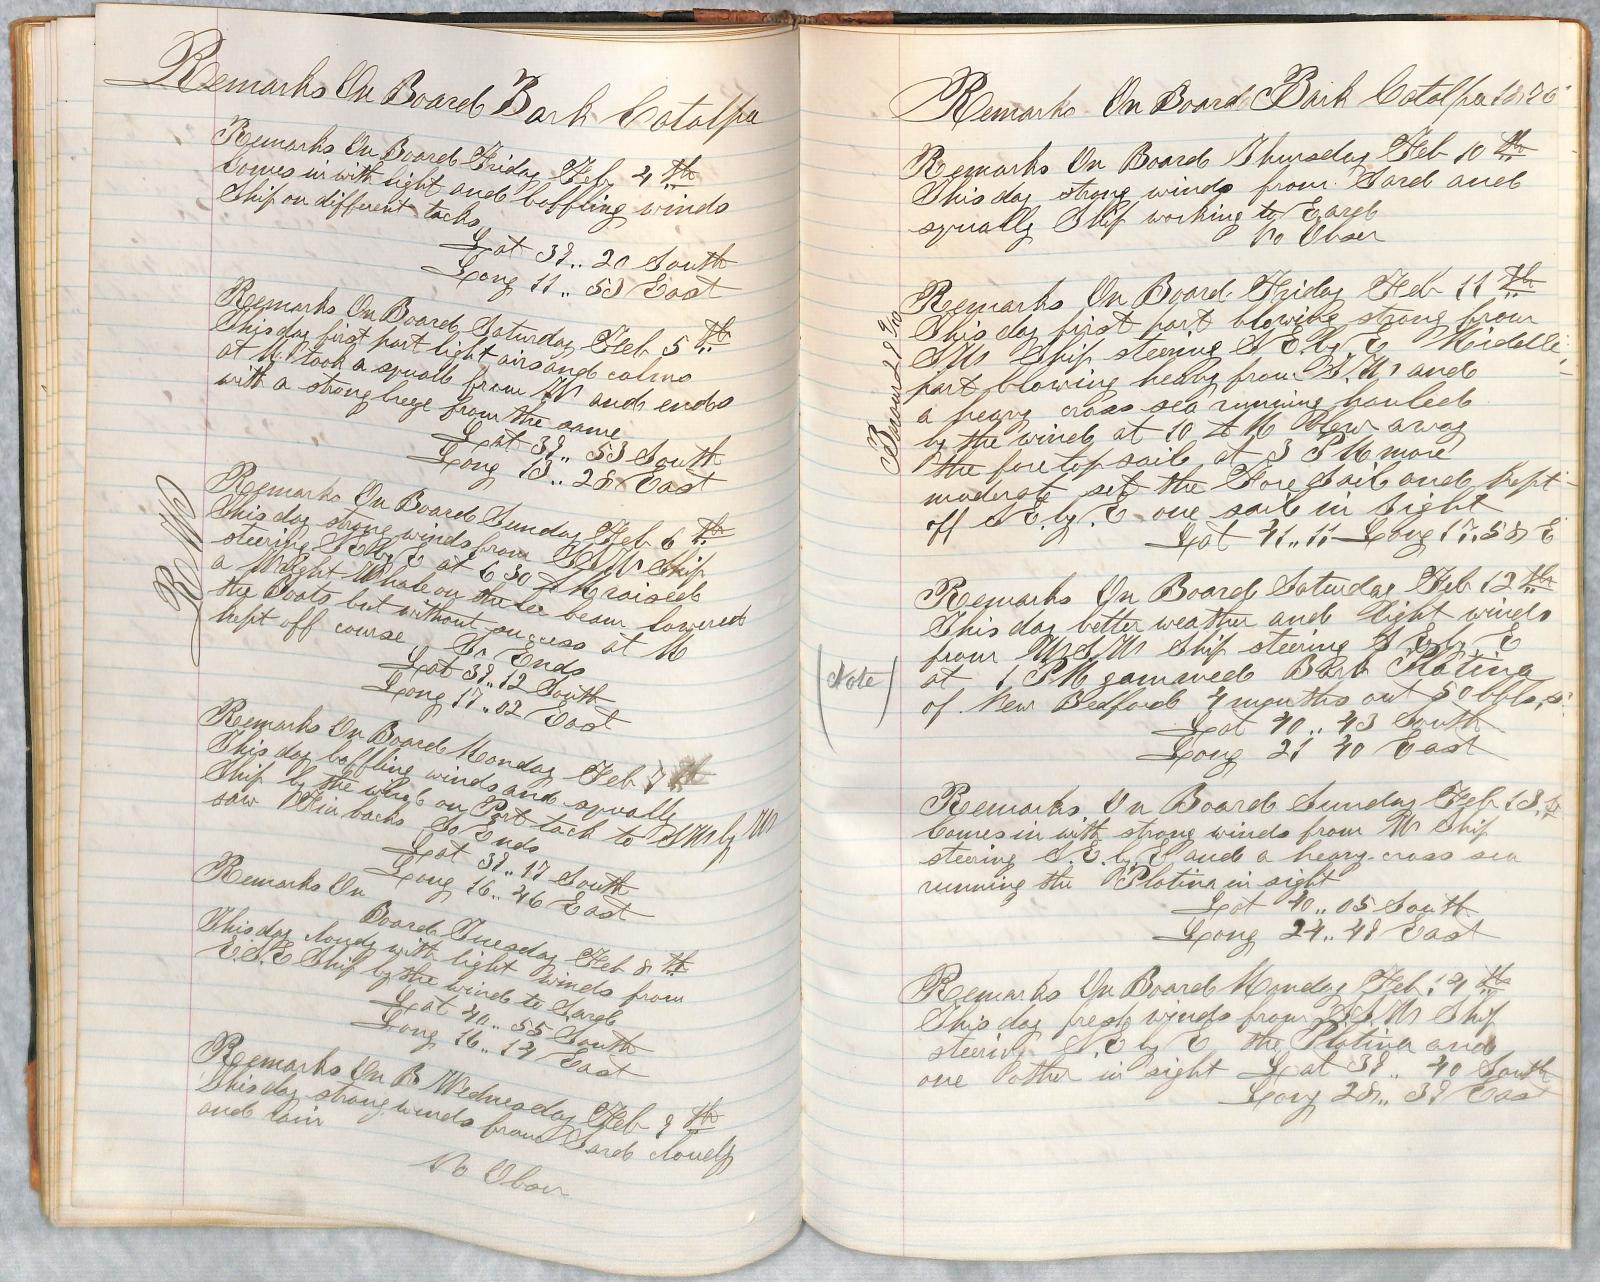 Remarks On Board Bark Catalpa
Remarks On Board Friday Feb 4th
Comes in with light and baffling winds
Ship on different tacks
Lat 39.. 20 South
Long 11.. 53 East
Remarks On Board Saturday Feb 5th
This day first part light airs and calms
at M. took a squall from W and ends
with a strong breze from the same
Lat 39.. 53 South
Long 13.. 28 East
Remarks On Board Sunday Feb 6th
This day strong winds from S.W. Ship
steering N.E. by E at 6 30 A M raised
a Wright Whale on the lee beam lowered
the Boats but without success at M
kept off course So Ends
Lat 39.. 12 South
Long 17.. 02 East
R W
Remarks On Board Monday Feb 7th
This day baffling winds and squally
Ship by the wind on Port tack to S.W. by W
saw Fin backs So Ends
Lat 39.. 47 South
Long 16.. 46 East
Remarks On
Board Tuesday Feb 8th
This day cloudy with light winds from
E.S.E Ship by the wind to Sard
Lat 40.. 55 South
Long 16.. 14 East
Remarks On B Wednesday Feb 9th
This day strong winds from Sard cloudy
and rain
No Obser
Remarks On Board Bark Catalpa 1876
Remarks On Board Thursday Feb 10th
This day strong winds from Sard and
squally Ship working to Eard
No Obser
Remarks On Board Friday Feb 11th
This day first part blowing strong from
S.W. Ship steering S E. by E Middle
part blowing heavy from S.W. and
a heavy cross sea running hauled
by the wind at 10 A M Blew away
the fore top sail at 3 P M more
moderate set the Fore Sail and kept
off S E. by. E one sail in Sight
Lat 41.. 11 Long 17.. 58 E
Remarks On Board Saturday Feb 12th
This day better weather and light winds
from W.S.W. Ship steering S E by E
at 1 P M gammed Bark Platina
of New Bedford 4 months out 50 bbls, s
Lat 40.. 43 South
Long 21 40 East
(Note)
Remarks On Board Sunday Feb 13
Comes in with strong winds from W Ship
steering S. E. by E and a heavy cross sea
running the Platina in sight
Lat 40.. 05 South
Long 24.. 49 East
Remarks On Board Monday Feb. 14th
This day fresh winds from S.W. Ship
steering N. E by E the Platina and
one other in sight Lat 39.. 40 South
Long 28.. 39 East